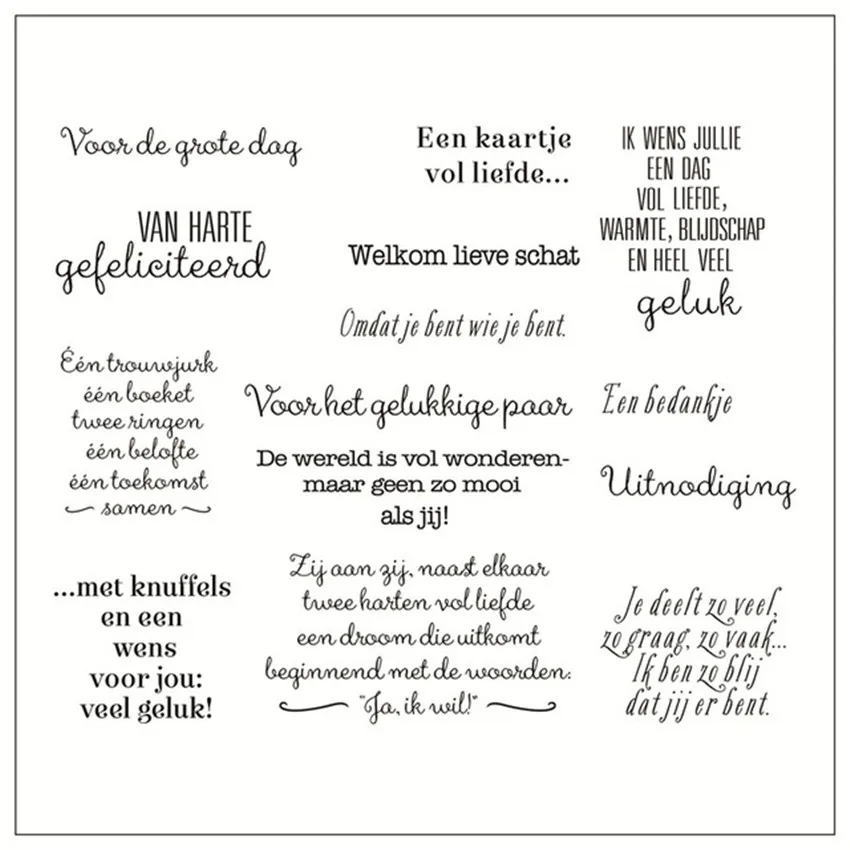 Voor de grote dag
Een kaartje
vol liefde...
IK WENS JULLIE
EEN DAG
VOL LIEFDE,
WARMTE, BLIJDSCHAP
EN HEEL VEEL
geluk
VAN HARTE
gefeliciteerd
Welkom lieve schat
Omdat je bent wie je bent.
Één trouwjurk
één boeket
twee ringen
één belofte
één toekomst
samen
Voor het gelukkige paar
Een bedankje
De wereld is vol wonderen-
maar geen zo mooi
als jij!
Uitnodiging
...met knuffels
en een
wens
voor jou:
veel geluk!
Zij aan zij, naast elkaar
twee harten vol liefde
een droom die uitkomt
beginnend met de woorden:
"Ja, ik wil!"
Je deelt zo veel,
zo graag, zo vaak...
Ik ben zo blij
dat jij er bent.